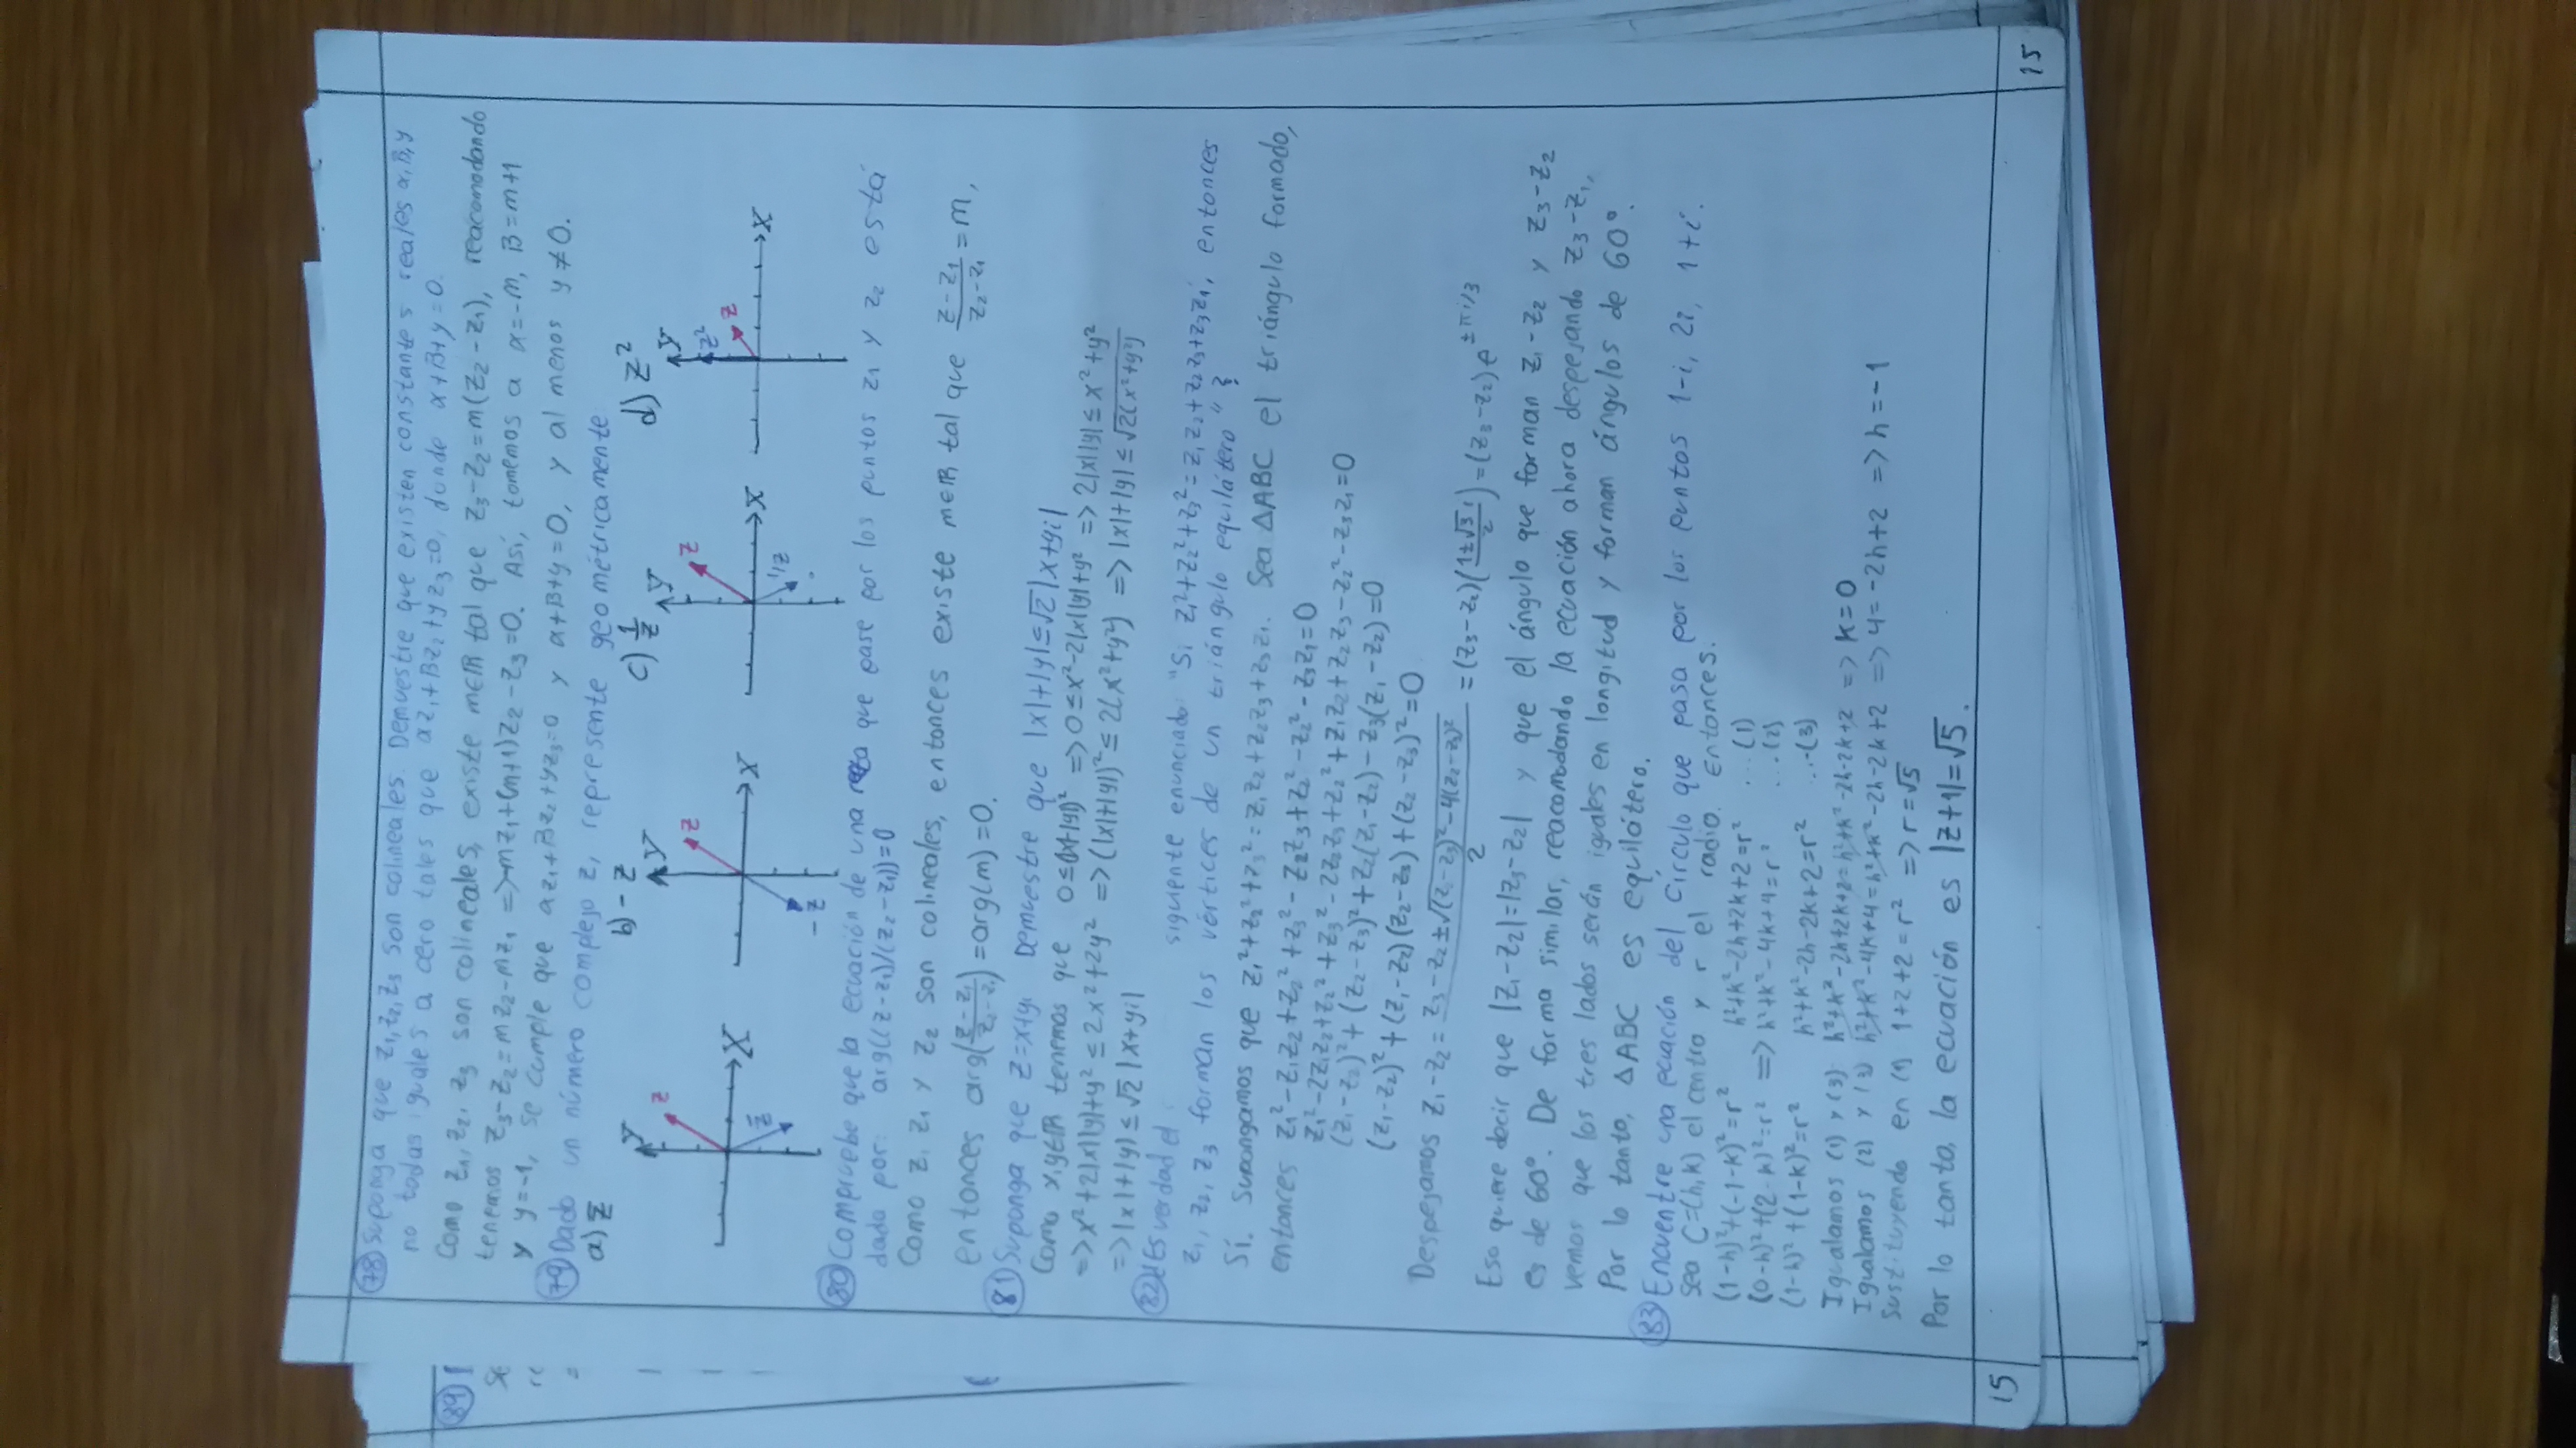 78 Suponga que z₁, z₂, z₃ son colineales. Demuestre que existen constantes reales α, β, γ
no todas iguales a cero tales que αz₁+βz₂+γz₃=0, donde α+β+γ=0.
Como z₁, z₂, z₃ son colineales, existe m∈ℝ tal que z₃-z₂=m(z₂-z₁), reacomodando
tenemos z₃-z₂=mz₂-mz₁ => -mz₁+(m+1)z₂-z₃=0. Así, tomemos a α=-m, β=m+1
y γ=-1, se cumple que αz₁+βz₂+γz₃=0 y α+β+γ=0, y al menos γ≠0.
79 Dado un número complejo z, represente geométricamente
a) z̄ b) -z c) 1/z d) z²
Y z X z̄
Y z X -z
Y z X 1/z
Y z² z X
80 Compruebe que la ecuación de una recta que pase por los puntos z₁ y z₂ está
dada por: arg((z-z₁)/(z₂-z₁))=0
Como z, z₁ y z₂ son colineales, entonces existe m∈ℝ tal que (z-z₁)/(z₂-z₁)=m,
entonces arg((z-z₁)/(z₂-z₁))=arg(m)=0.
81 Suponga que z=x+yi Demuestre que |x|+|y|≤√2|x+yi|
Como x,y∈ℝ tenemos que 0≤(|x|+|y|)² => 0≤x²-2|x||y|+y² => 2|x||y|≤x²+y²
=> x²+2|x||y|+y²≤2x²+2y² => (|x|+|y|)²≤2(x²+y²) => |x|+|y|≤√(2(x²+y²))
=> |x|+|y|≤√2|x+yi|
82 ¿Es verdad el siguiente enunciado: "Si z₁²+z₂²+z₃²=z₁z₂+z₂z₃+z₃z₁, entonces
z₁, z₂, z₃ forman los vértices de un triángulo equilátero"?
Sí. Supongamos que z₁²+z₂²+z₃²=z₁z₂+z₂z₃+z₃z₁. Sea △ABC el triángulo formado,
entonces z₁²-z₁z₂+z₂²+z₃²-z₂z₃+z₂²-z₂²-z₃z₁=0
z₁²-2z₁z₂+z₂²+z₃²-2z₂z₃+z₂²+z₁z₂+z₂z₃-z₂²-z₃z₁=0
(z₁-z₂)²+(z₂-z₃)²+z₂(z₁-z₂)-z₃(z₁-z₂)=0
(z₁-z₂)²+(z₁-z₂)(z₂-z₃)+(z₂-z₃)²=0
Despejamos z₁-z₂=(z₃-z₂±√((z₂-z₃)²-4(z₂-z₃)²))/2=(z₃-z₂)((1±√3i)/2)=(z₃-z₂)e^(±πi/3)
Eso quiere decir que |z₁-z₂|=|z₃-z₂| y que el ángulo que forman z₁-z₂ y z₃-z₂
es de 60°. De forma similar, reacomodando la ecuación ahora despejando z₃-z₁,
vemos que los tres lados serán iguales en longitud y forman ángulos de 60°.
Por lo tanto, △ABC es equilátero.
83 Encuentre una ecuación del círculo que pasa por los puntos 1-i, 2i, 1+i.
Sea C=(h,k) el centro y r el radio. Entonces.
(1-h)²+(-1-k)²=r² h²+k²-2h+2k+2=r² ...(1)
(0-h)²+(2-k)²=r² => h²+k²-4k+4=r² ...(2)
(1-h)²+(1-k)²=r² h²+k²-2h-2k+2=r² ...(3)
Igualamos (1) y (3): h²+k²-2h+2k+2=h²+k²-2h-2k+2 => k=0
Igualamos (2) y (3) h²+k²-4k+4=h²+k²-2h-2k+2 => 4=-2h+2 => h=-1
Sustituyendo en (1) 1+2+2=r² => r=√5
Por lo tanto, la ecuación es |z+1|=√5.
15
15
89
se
=